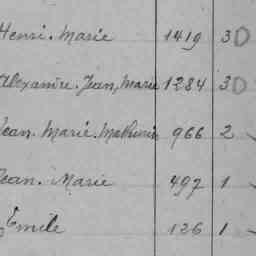 Henri. Marie 1419 3D
Alexandre. Jean, Marie 1284 3D
Jean. Marie. Mathurin 966 2
Jean. Marie 497 1
Emile 126 1